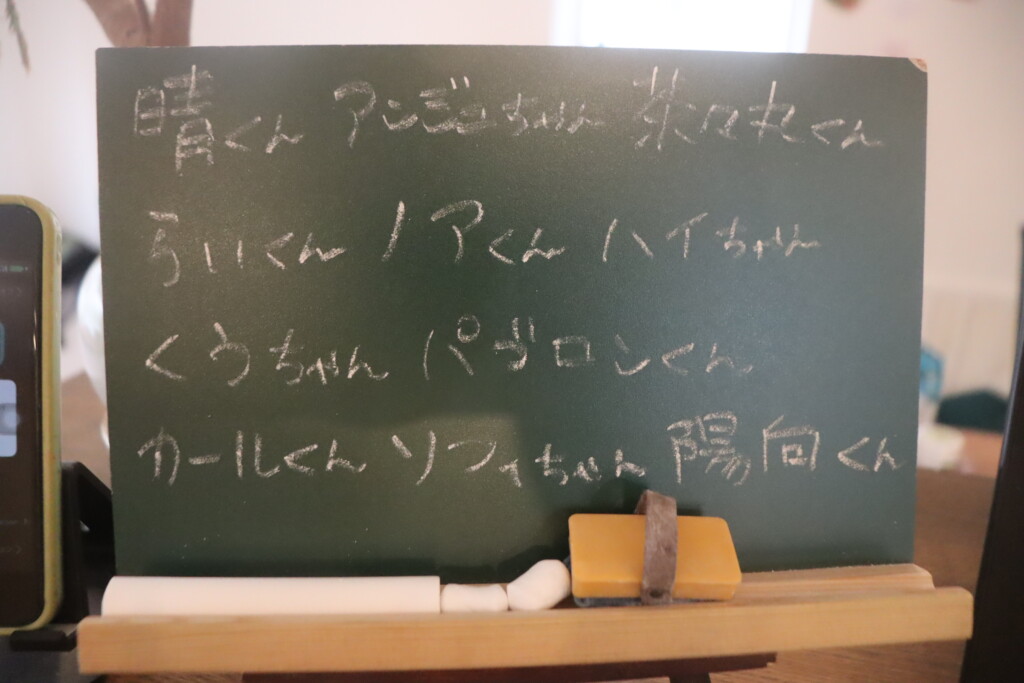 晴くん アンジュちゃん 茶々丸くん
引いくん ノアくん ハイちゃん
くうちゃん パブロンくん
カールくん ソフィちゃん 陽向くん